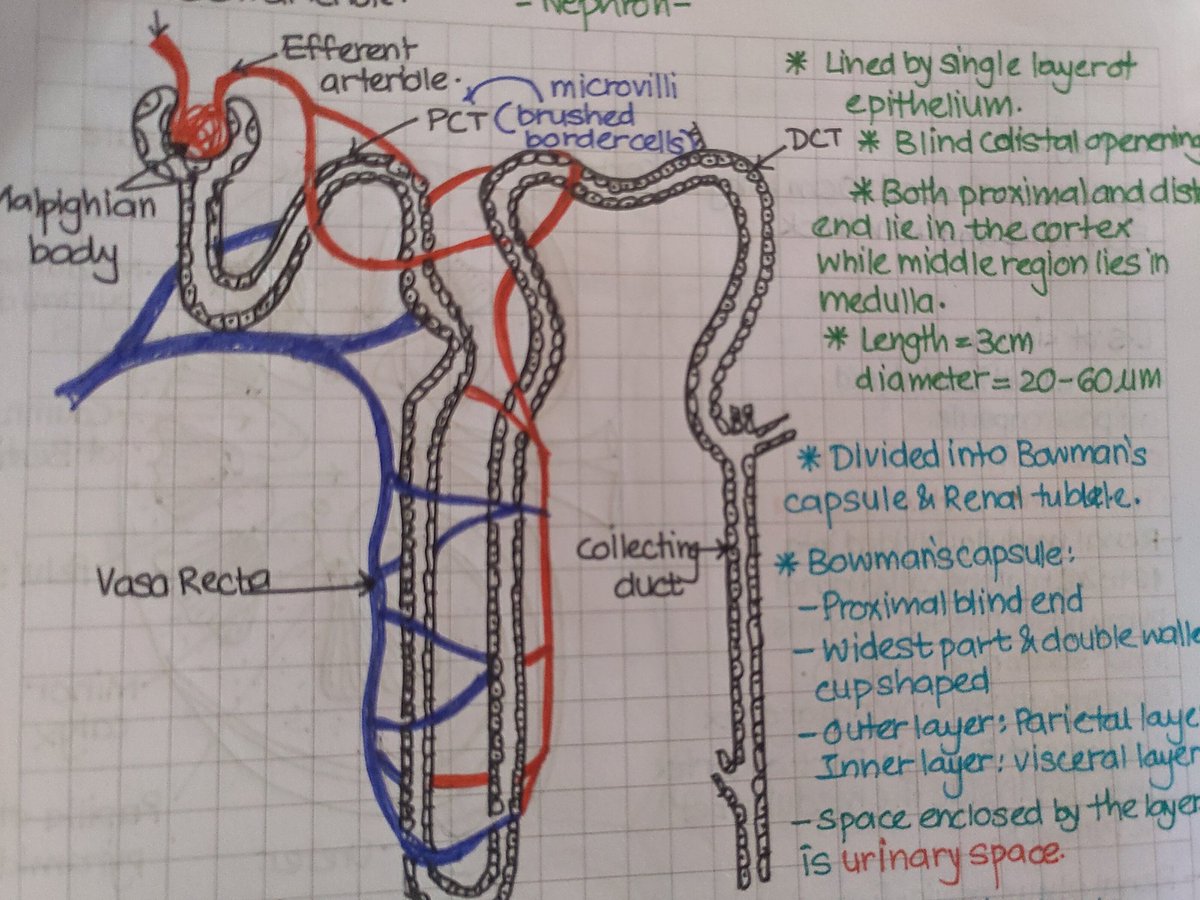 -Nephron-
Efferent
arteriole.
microvilli
PCT (brushed
border cells)
DCT
Malpighian
body
Vasa Recta
collecting
duct
* Lined by single layer of
epithelium.
* Blind (distal openening
* Both proximal and dist
end lie in the cortex
while middle region lies in
medulla.
* Length = 3cm
diameter = 20-60 µm
* Divided into Bowman's
capsule & Renal tubule.
* Bowman's capsule:
- Proximal blind end
- Widest part & double walle
cup shaped
- Outer layer: Parietal laye
Inner layer: visceral layer
- Space enclosed by the layer
is urinary space.